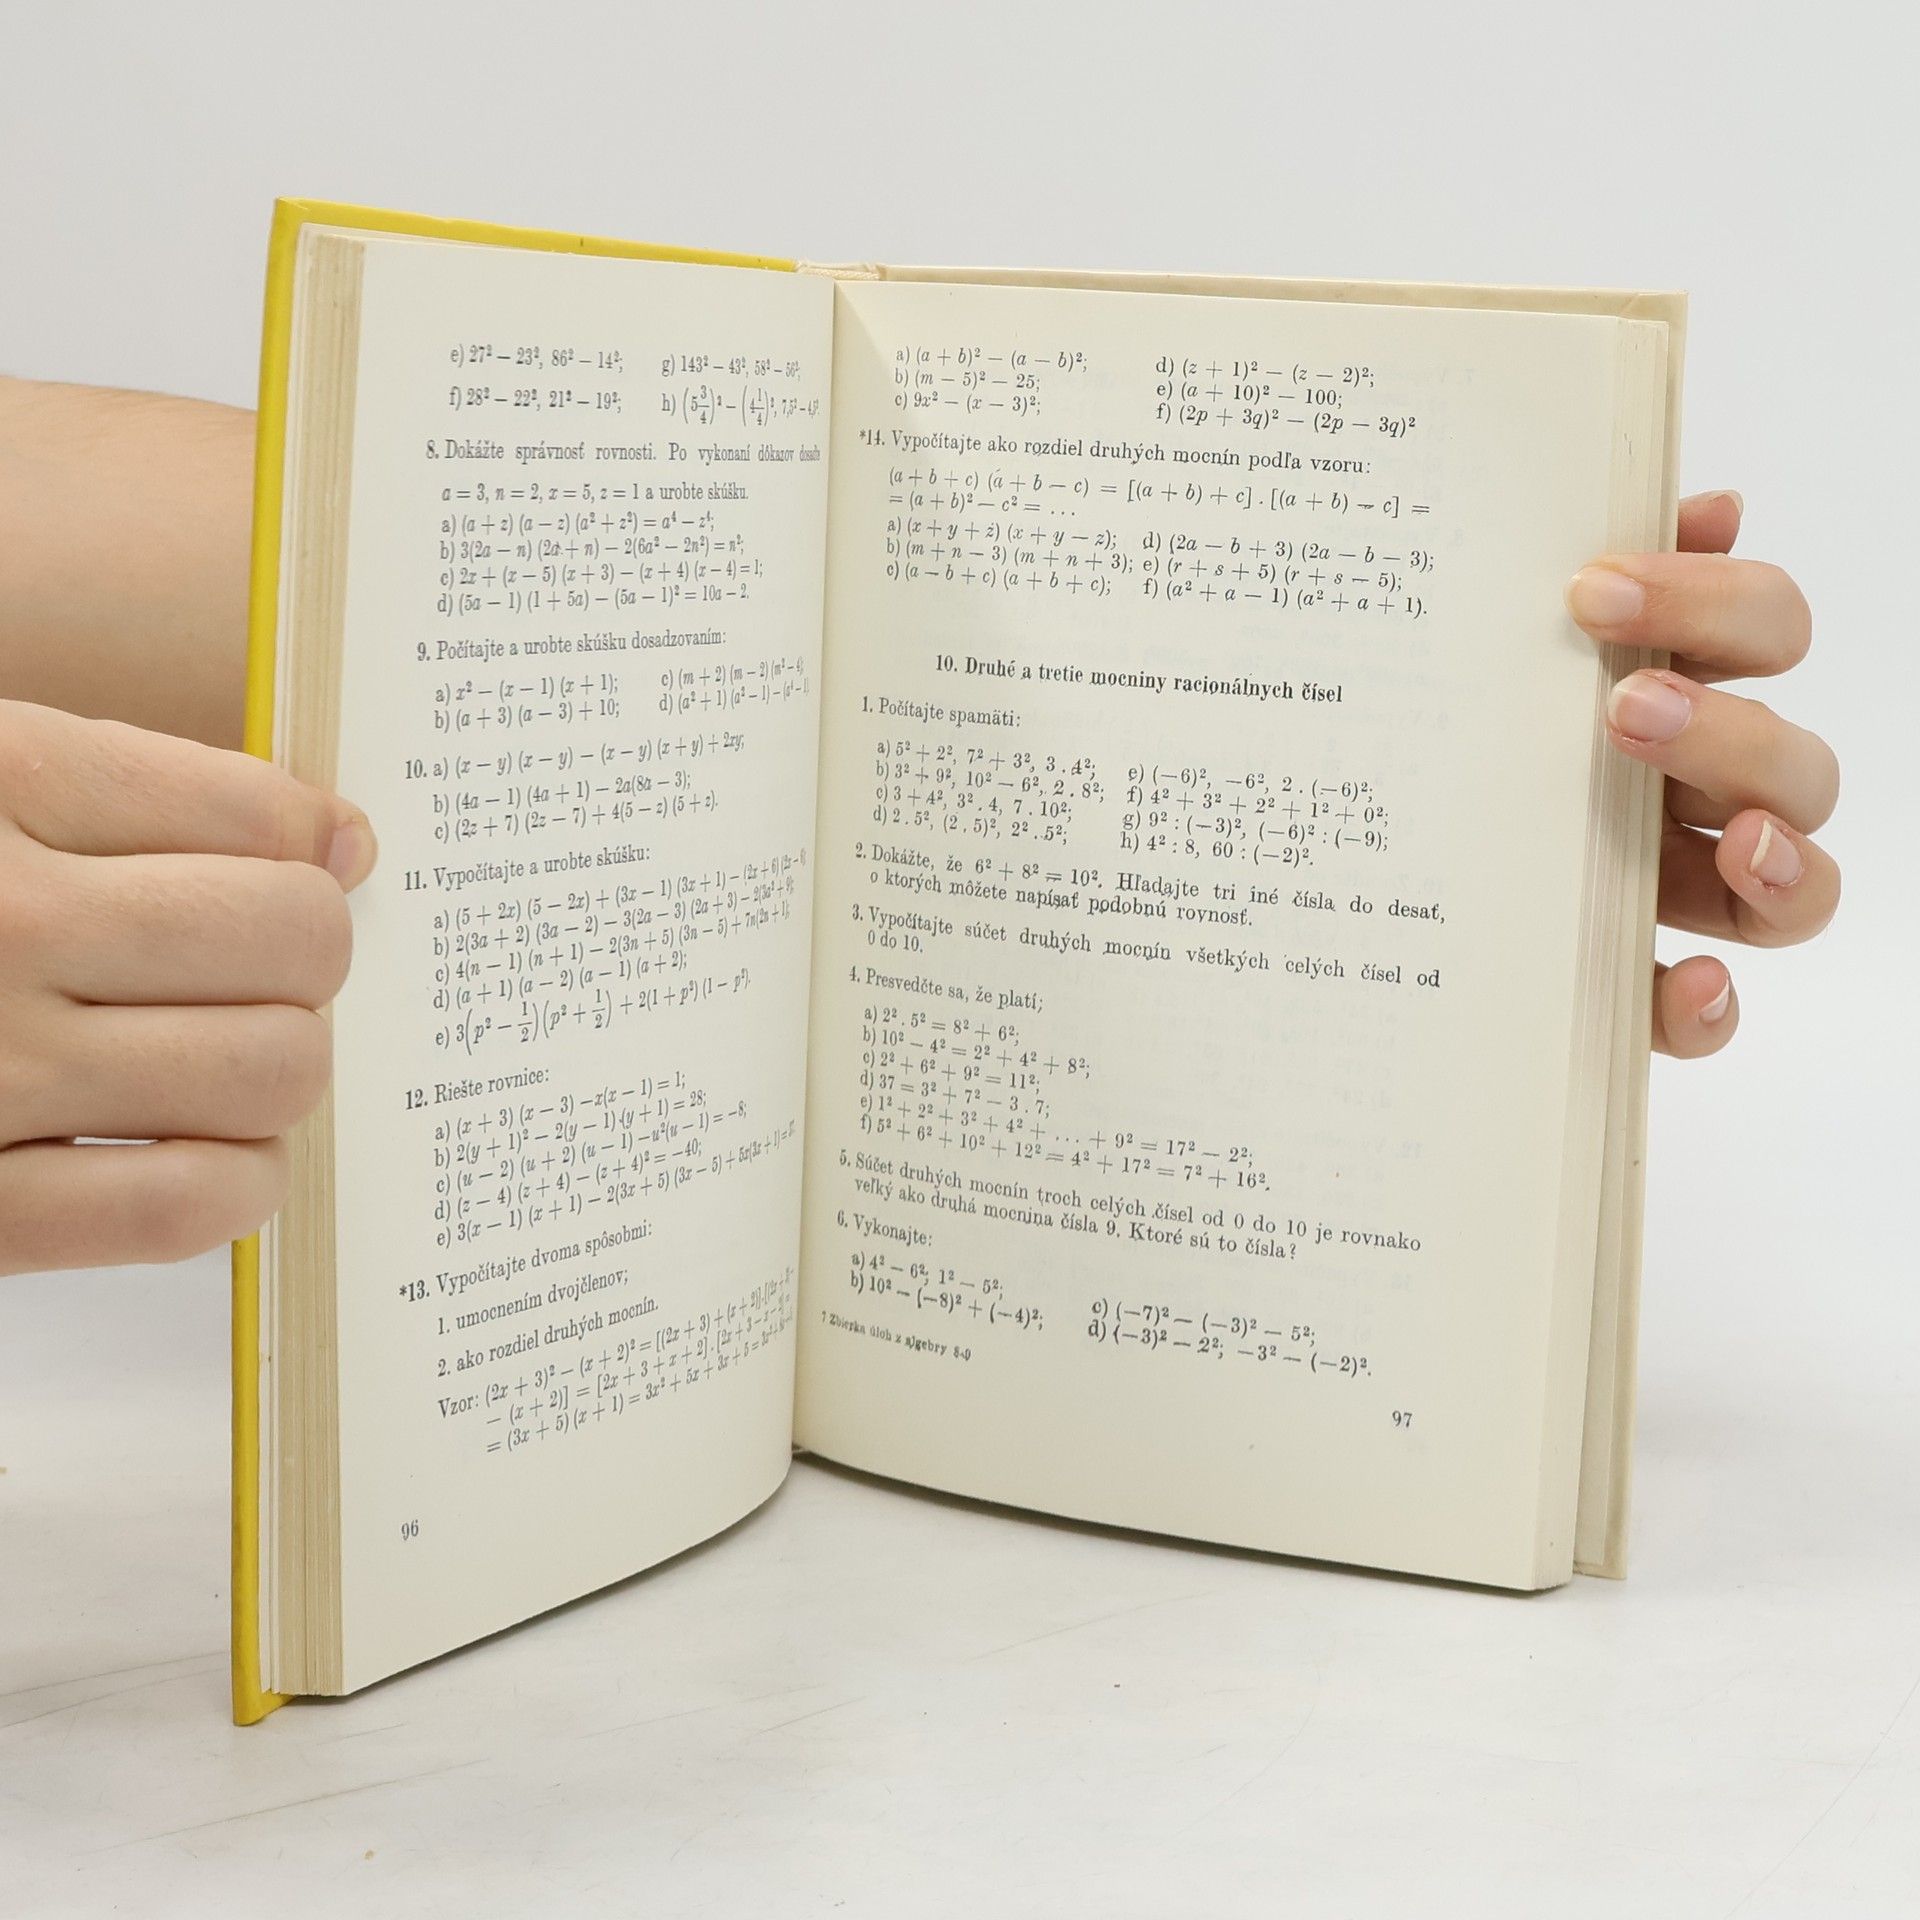 e) 27² − 23², 86² − 14²; g) 143² − 43², 58² − 56²;
f) 28² − 22², 21² − 19²; h) (5 3/4)² − (4 1/4)², 7,5² − 4,5²
8. Dokážte správnosť rovnosti. Po vykonaní dôkazov dosaďte
a = 3, n = 2, x = 5, z = 1 a urobte skúšku.
a) (a + z) (a − z) (a² + z²) = a⁴ − z⁴;
b) 3(2a − n) (2a + n) − 2(6a² − 2n²) = n²;
c) 2x + (x − 5) (x + 3) − (x + 4) (x − 4) = 1;
d) (5a − 1) (1 + 5a) − (5a − 1)² = 10a − 2.
9. Počítajte a urobte skúšku dosadzovaním:
a) x² − (x − 1) (x + 1); c) (m + 2) (m − 2) (m² − 4);
b) (a + 3) (a − 3) + 10; d) (a² + 1) (a² − 1) − (a⁴ − 1)
10. a) (x − y) (x − y) − (x − y) (x + y) + 2xy;
b) (4a − 1) (4a + 1) − 2a(8a − 3);
c) (2z + 7) (2z − 7) + 4(5 − z) (5 + z).
11. Vypočítajte a urobte skúšku:
a) (5 + 2x) (5 − 2x) + (3x − 1) (3x + 1) − (2x + 6) (2x − 6)
b) 2(3a + 2) (3a − 2) − 3(2a − 3) (2a + 3) − 2(3a² + 9);
c) 4(n − 1) (n + 1) − 2(3n + 5) (3n − 5) + 7n(2n + 1);
d) (a + 1) (a − 2) (a − 1) (a + 2);
e) 3(p² − 1/2) (p² + 1/2) + 2(1 + p²) (1 − p²).
12. Riešte rovnice:
a) (x + 3) (x − 3) − x(x − 1) = 1;
b) 2(y + 1)² − 2(y − 1) (y + 1) = 28;
c) (u − 2) (u + 2) (u − 1) − u²(u − 1) = −8;
d) (z − 4) (z + 4) − (z + 4)² = −40;
e) 3(x − 1) (x + 1) − 2(3x + 5) (3x − 5) + 5x(3x + 1) =
*13. Vypočítajte dvoma spôsobmi:
1. umocnením dvojčlenov;
2. ako rozdiel druhých mocnín.
Vzor: (2x + 3)² − (x + 2)² = [(2x + 3) + (x + 2)] . [(2x + 3) −
− (x + 2)] = [2x + 3 + x + 2] . [2x + 3 − x − 2] =
= (3x + 5) (x + 1) = 3x² + 5x + 3x + 5 = 3x² + 8x + 5
96
a) (a + b)² − (a − b)²; d) (z + 1)² − (z − 2)²;
b) (m − 5)² − 25; e) (a + 10)² − 100;
c) 9x² − (x − 3)²; f) (2p + 3q)² − (2p − 3q)²
*14. Vypočítajte ako rozdiel druhých mocnín podľa vzoru:
(a + b + c) (a + b − c) = [(a + b) + c] . [(a + b) − c] =
= (a + b)² − c² = ...
a) (x + y + z) (x + y − z); d) (2a − b + 3) (2a − b − 3);
b) (m + n − 3) (m + n + 3); e) (r + s + 5) (r + s − 5);
c) (a − b + c) (a + b + c); f) (a² + a − 1) (a² + a + 1).
10. Druhé a tretie mocniny racionálnych čísel
1. Počítajte spamäti:
a) 5² + 2², 7² + 3², 3 . 4²; e) (−6)², −6², 2 . (−6)²;
b) 3² + 9², 10² − 6², 2 . 8²; f) 4² + 3² + 2² + 1² + 0²;
c) 3 + 4², 3² . 4, 7 . 10²; g) 9² : (−3)², (−6)² : (−9);
d) 2 . 5², (2 . 5)², 2² . 5²; h) 4² : 8, 60 : (−2)².
2. Dokážte, že 6² + 8² = 10². Hľadajte tri iné čísla do desať,
o ktorých môžete napísať podobnú rovnosť.
3. Vypočítajte súčet druhých mocnín všetkých celých čísel od
0 do 10.
4. Presvedčte sa, že platí;
a) 2² . 5² = 8² + 6²;
b) 10² − 4² = 2² + 4² + 8²;
c) 2² + 6² + 9² = 11²;
d) 37 = 3² + 7² − 3 . 7;
e) 1² + 2² + 3² + 4² + ... + 9² = 17² − 2²;
f) 5² + 6² + 10² + 12² = 4² + 17² = 7² + 16².
5. Súčet druhých mocnín troch celých čísel od 0 do 10 je rovnako
veľký ako druhá mocnina čísla 9. Ktoré sú to čísla?
6. Vykonajte:
a) 4² − 6²; 1² − 5²; c) (−7)² − (−3)² − 5²;
b) 10² − (−8)² + (−4)²; d) (−3)² − 2²; −3² − (−2)².
7 Zbierka úloh z algebry 8-9
97